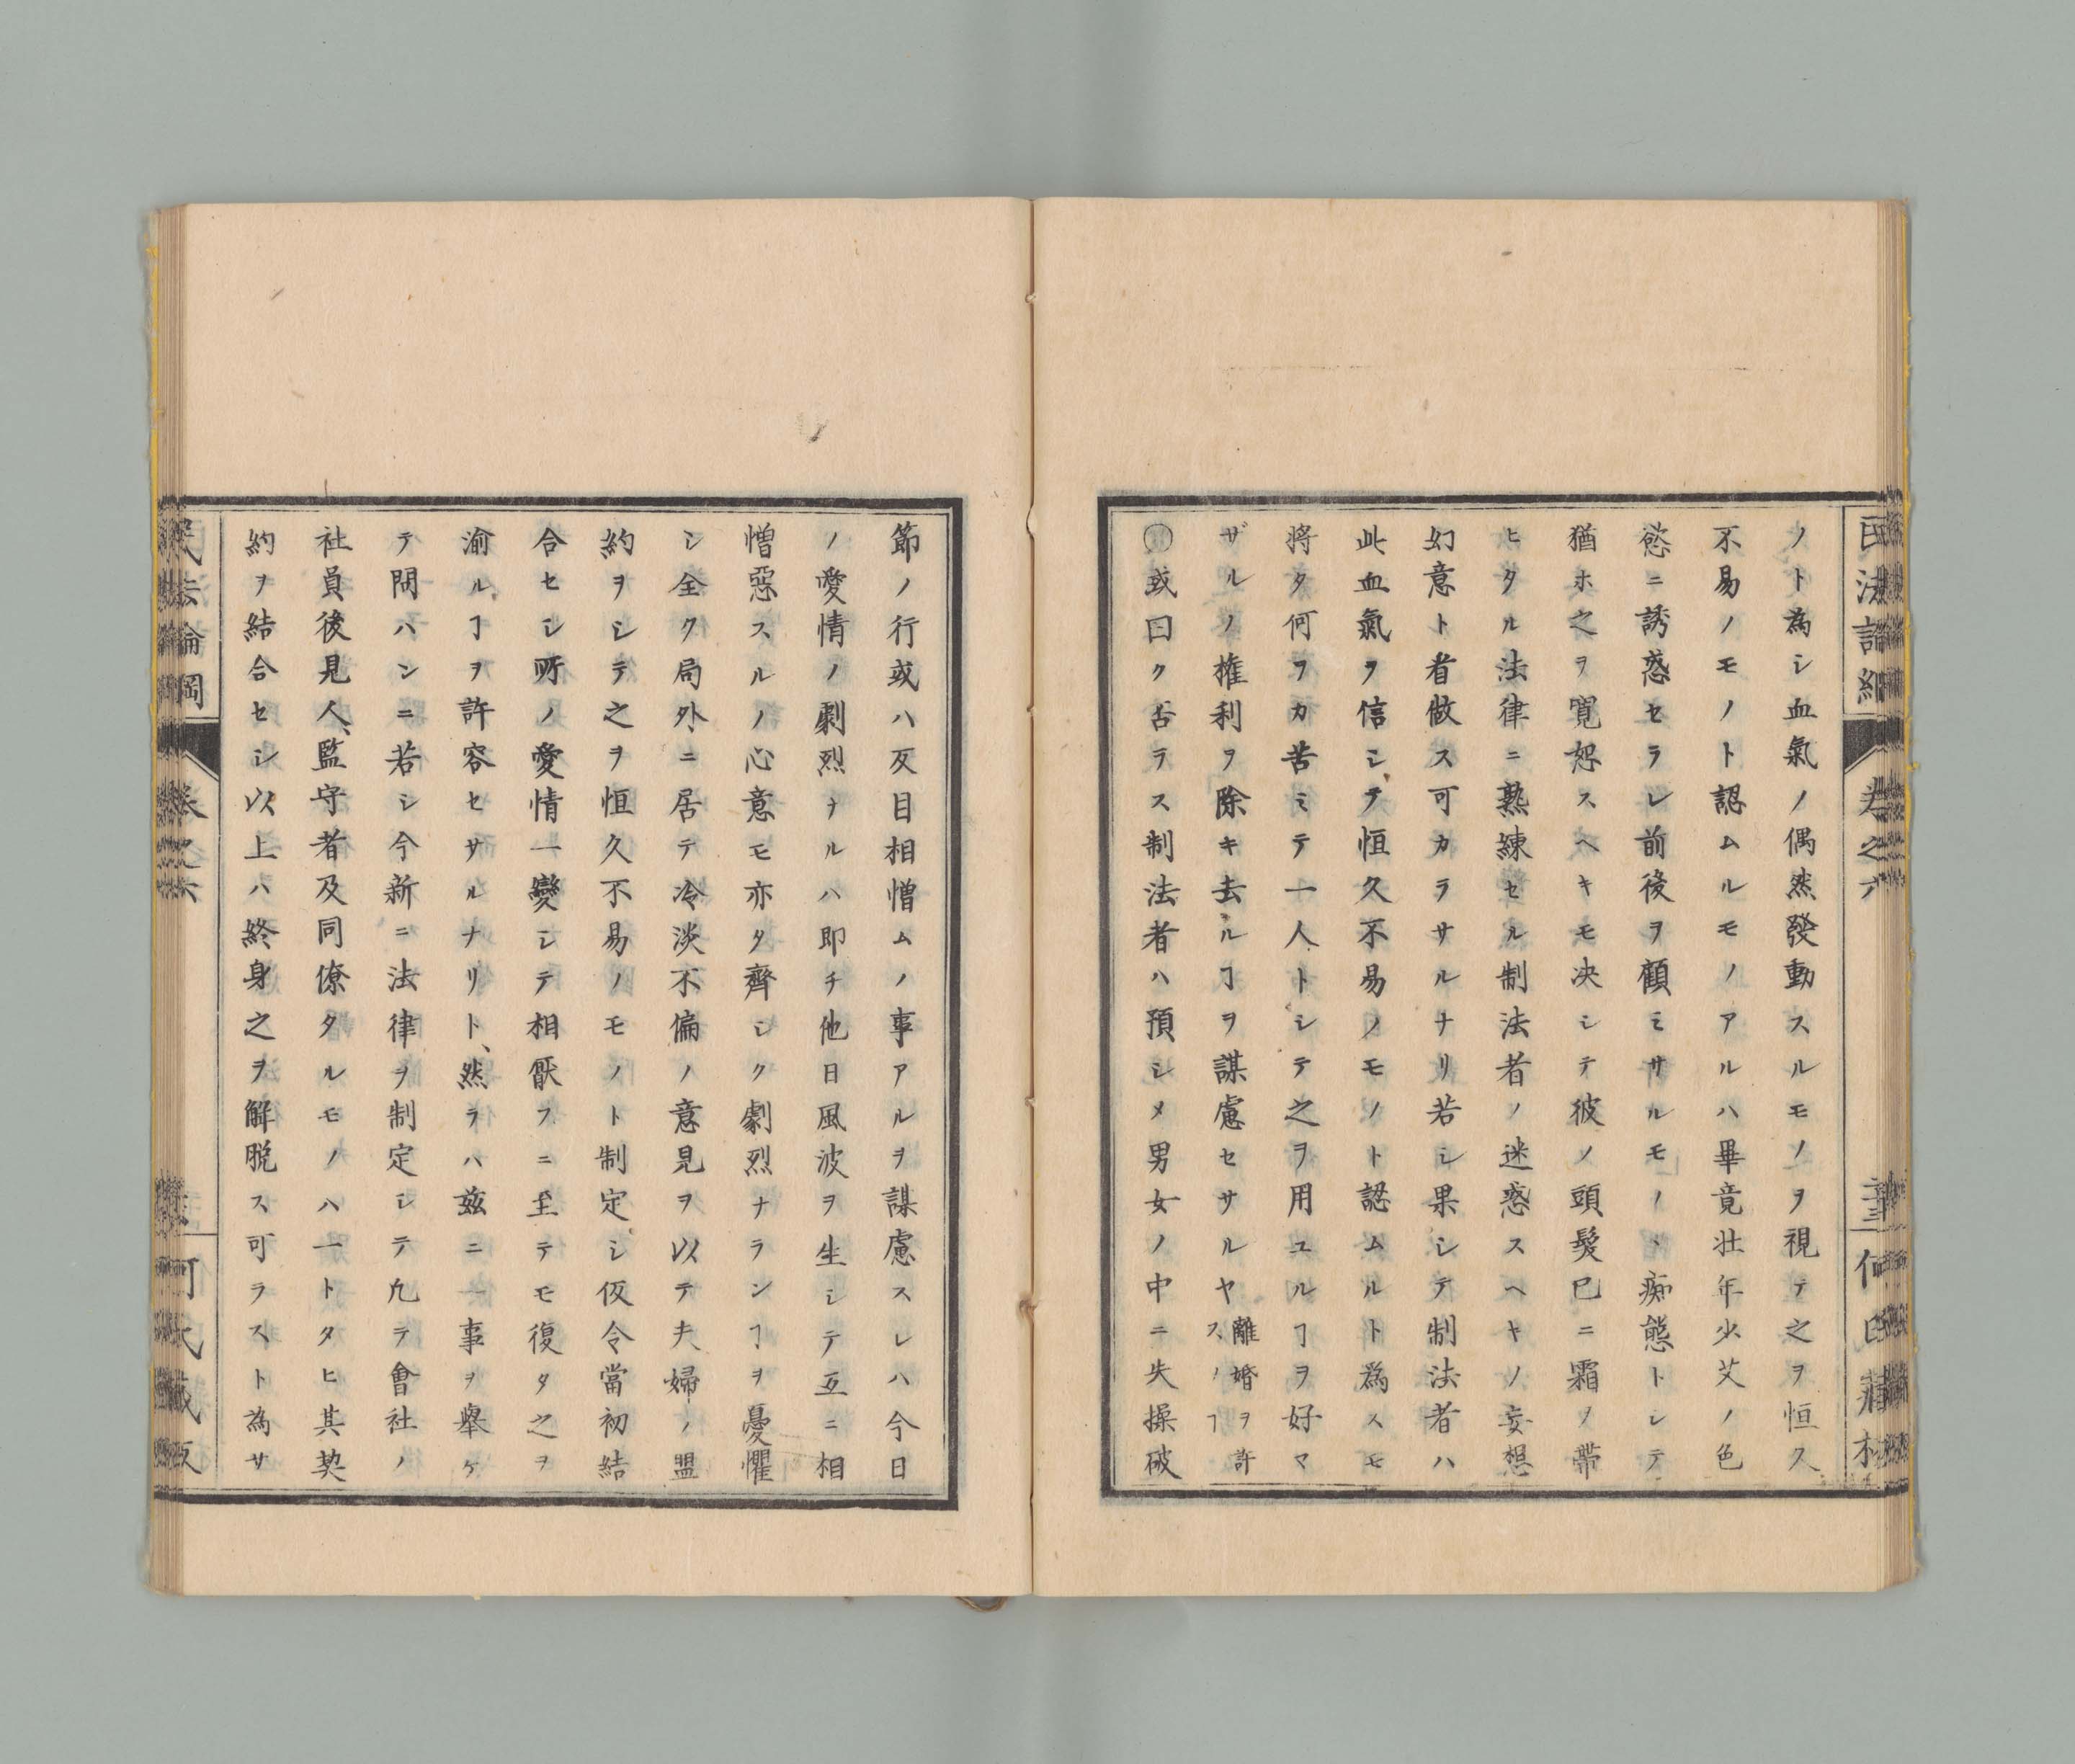 ノト為シ血氣ノ偶然發動スルモノヲ視テ之ヲ恒久
不易ノモノト認ムルモノアルハ畢竟壮年少艾ノ色
慾ニ誘惑セラレ前後ヲ顧ミサルモノヽ痴態トシテ
猶ホ之ヲ寛恕スヘキモ决シテ彼ノ頭髮已ニ霜ヲ帶
ヒタル法律ニ熟練セル制法者ノ迷惑スヘキノ妄想
幻意ト看做ス可カラサルナリ若シ果シテ制法者ハ
此血氣ヲ信シテ恒久不易ノモノト認ムルト為スモ
將タ何ヲカ苦ミテ一人トシテ之ヲ用ユルヿヲ好マ
ザルノ権利ヲ除キ去ルヿヲ謀慮セサルヤ離婚ヲ許スノヿ
或曰ク否ラス制法者ハ預シメ男女ノ中ニ失操破
節ノ行或ハ反目相憎ムノ事アルヲ謀慮スレハ今日
ノ愛情ノ劇烈ナルハ即チ他日風波ヲ生シテ互ニ相
憎惡スルノ心意モ亦タ齊シク劇烈ナランヿヲ憂懼
シ全ク局外ニ居テ冷淡不偏ノ意見ヲ以テ夫婦ノ盟
約ヲシテ之ヲ恒久不易ノモノト制定シ仮令當初結
合セシ所ノ愛情一變シテ相厭フニ至テモ復タ之ヲ
渝ルヿヲ許容セサルナリト、然ラハ茲ニ一事ヲ舉ケ
テ問ハンニ若シ今新ニ法律ヲ制定シテ凡ラ會社ノ
社員後見人、監守者及同僚タルモノハ一トタヒ其契
約ヲ結合セシ以上ハ終身之ヲ解脱ス可ラスト為サ
民法論綱
卷之六
何氏藏版